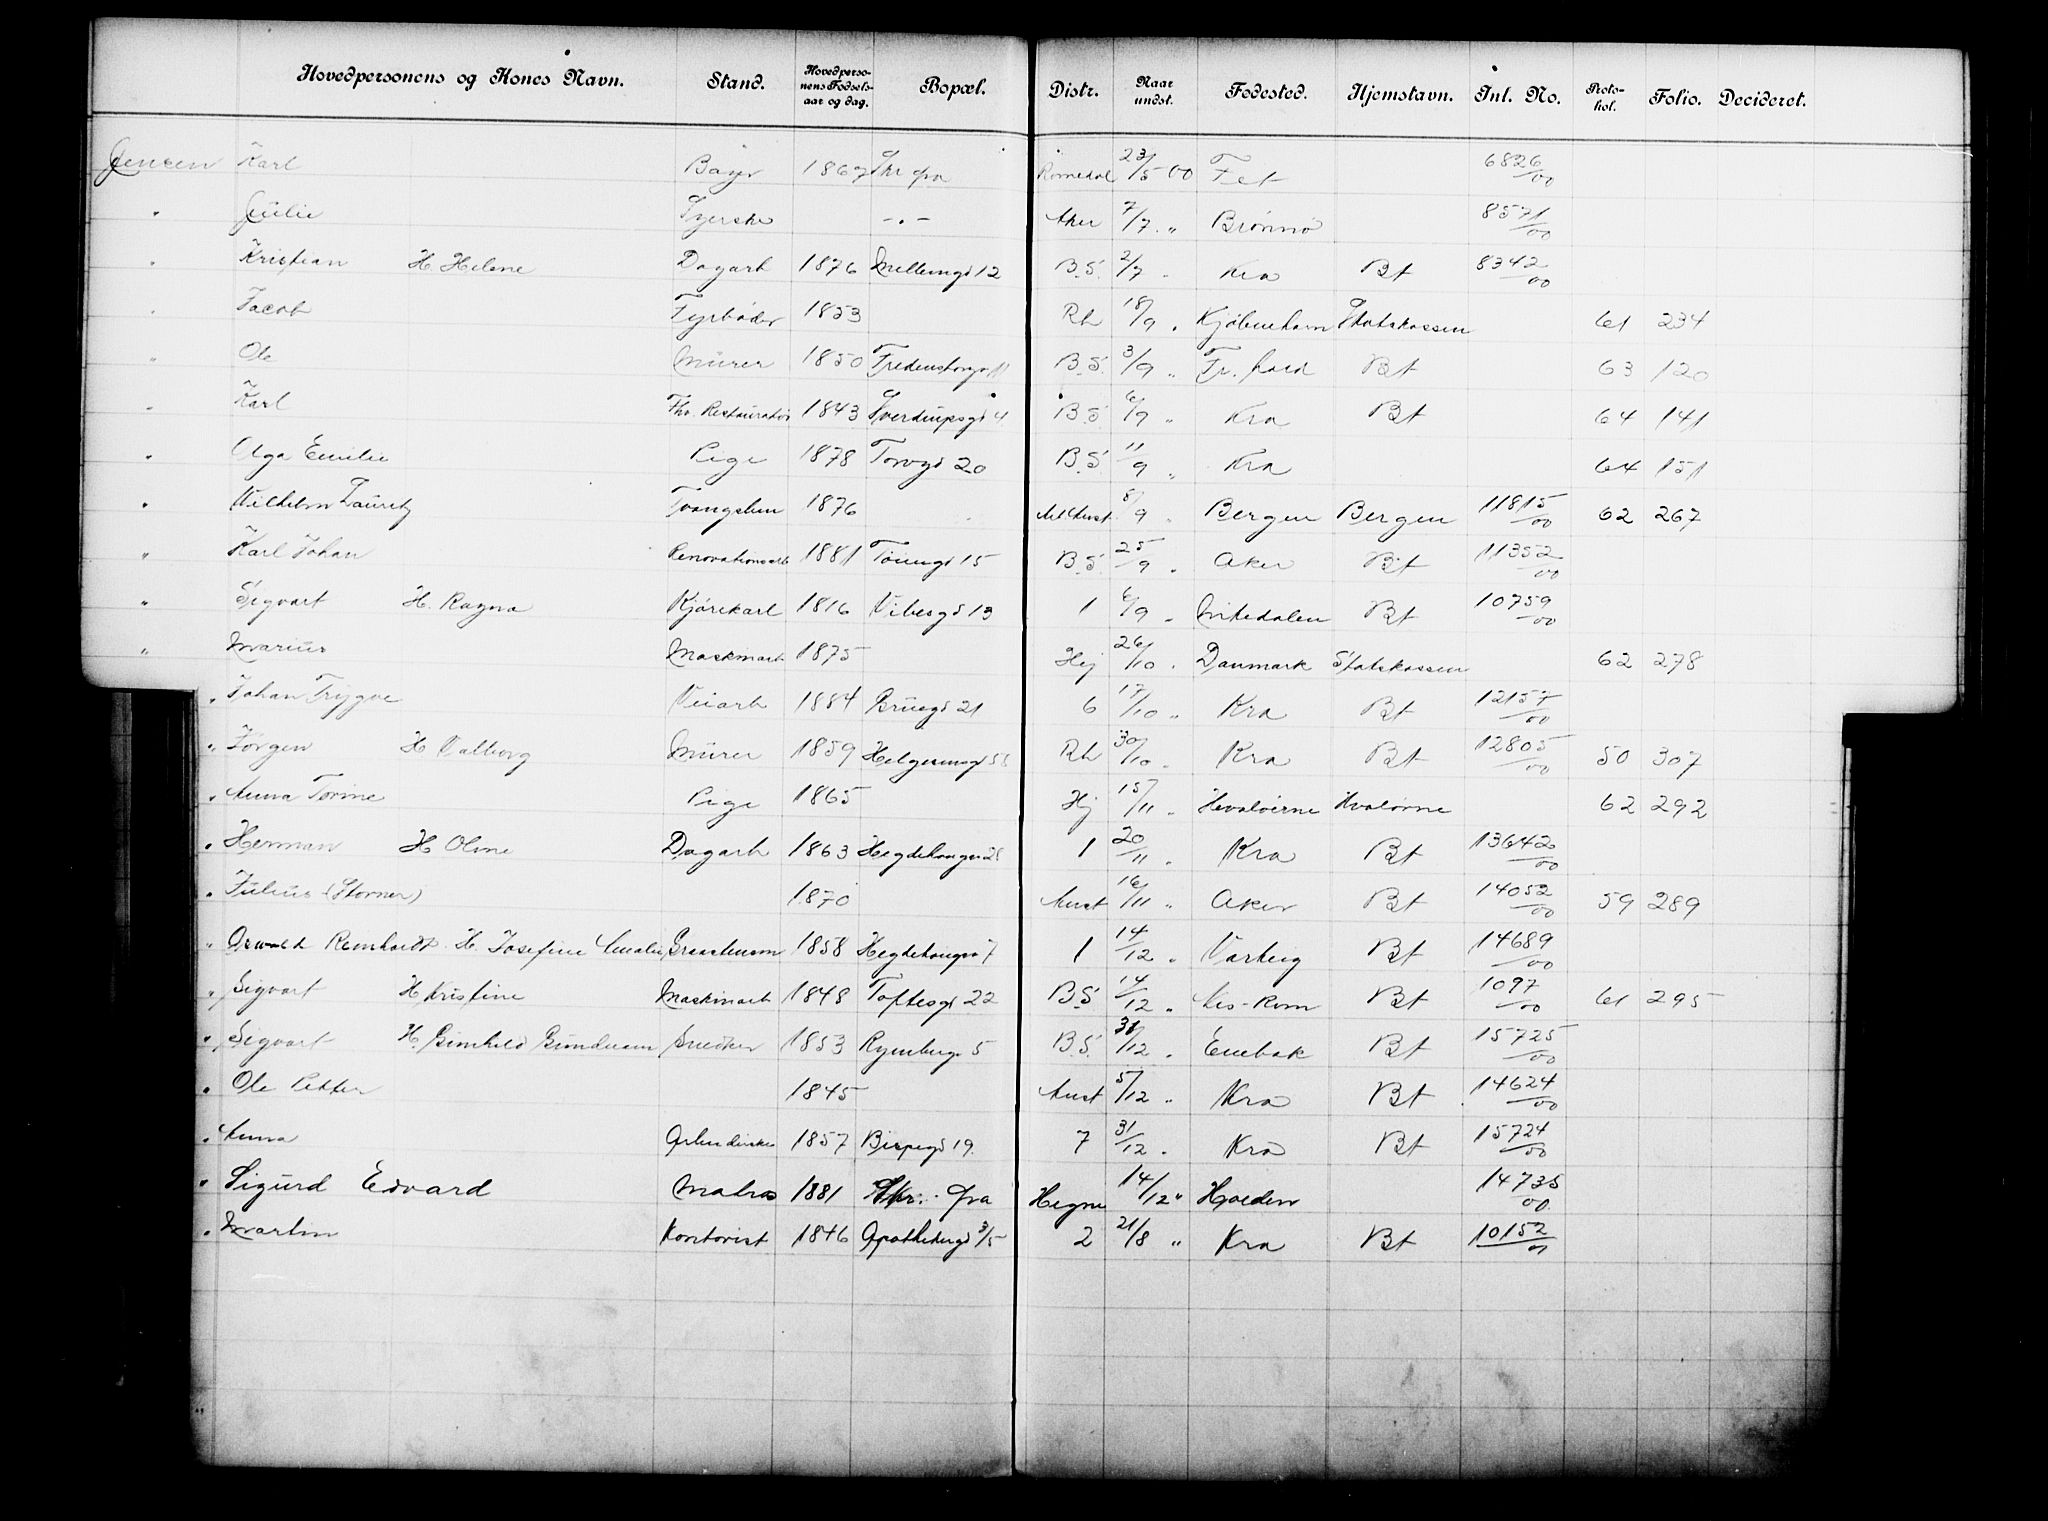 Hovedpersonens og Kones Navn. Stand. Hovedpersonens Fødselsaar og dag. Bopæl. Distr. Naar undst. Fødested. Hjemstavn. Inl. No. Protokol. Folio. Decideret.
Jensen Karl 1867 Skr fra Romedal 23/5 00 Fet 6826/00
" Julie Syerske -"- Aker 7/7 " Brønnø 8571/00
" Kristian H. Helene Dagarb 1876 Møllemgd 12 B.S. 2/7 " Kra Bt 8342/00
" Jacob Fyrbøder 1853 Rh 18/9 " Kjøbenhavn Statskassen 61 234
" Ole Murer 1850 B.S. 3/9 " Bt 63 120
" Karl Fhv. Restauratør 1843 Sverdrupsgd 4 B.S. 6/9 " Kra Bt 64 141
" Olga Emilie Pige 1878 Torvgd 20 B.S. 11/9 " Kra 64 151
" Vilhelm Lauretz Tvangslem 1876 8/9 " Bergen Bergen 11815/00 62 267
" Karl Johan Renovationsarb 1881 Tøiengd 15 B.S. 25/9 " Aker Bt 11352/00
" Sigvart H. Ragna Kjørekarl 1816 Vibesgd 13 1 6/9 " Nitedalen Bt 10759/00
" Marius Maskinarb 1875 Hej 26/10 " Danmark Statskassen 62 278
" Johan Trygve Veiarb 1884 Bruegd 21 6 17/10 " Kra Bt 12157/00
" Jørgen H Valborg Murer 1859 Helgesensgd Rh 30/10 " Kra Bt 12805/00 50 307
" Anna Torine Pige 1865 Hej 15/11 " Hvaløerne Hvaløerne 62 292
" Herman H Oline Dagarb 1863 Hegdehaugsv 1 20/11 " Kra Bt 13642/00
" Julius (Storner) 1870 Anst 16/11 " Aker Bt 14052/00 59 289
" Osvald Reinholdt H. Josefine Amalie 1858 Hegdehaugsv 7 1 14/12 " Varteig Bt 14689/00
" Sigvart H Kristine Maskinarb 1848 Toftesgd 22 B.S. 14/12 " Bt 1097/00 61 295
" Sigvart H. Snedker 1853 5 B.S. 31/12 " Enebak Bt 15725/00
" Ole Petter 1845 Anst 5/12 " Kra Bt 14624/00
" Anna Arbeiderske 1857 Bispegd 19. 7 31/12 " Kra Bt 15724/00
" Sigurd Edvard Matros 1881 Skr. fra 14/12 " 14738/00
" Martin Kontorist 1846 Apothekergd 3/5 2 21/8 " Kra Bt 10152/00